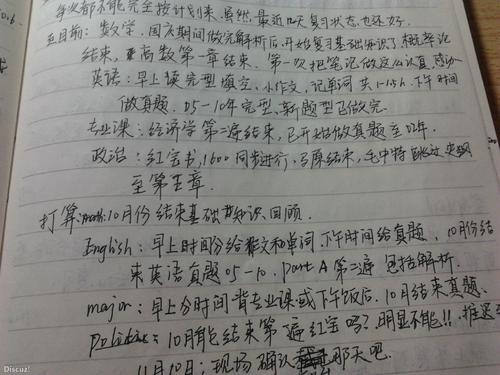 每次都不能完全按计划来.虽然,最近几天复习状态也还好.
至目前:数学,国庆期间做完解析后,开始复习基础知识了.概率论
结束,至高数第一章结束.第一次把笔记做这么认真,
英语:早上读完型填空、小作文,记单词 共1-1.5h.下午时间
做真题.05-10年完型、新题型已做完.
专业课:经济学第二遍结束,已开始做真题至02年.
政治:红宝书,1600同步进行,马原结束,毛中特
至第五章.
打算:math:10月份结束基础知识回顾.
English:早上时间给作文和单词.下午时间给真题,10月份结
束英语真题05-10.Part A 第二遍 包括解析.
major:早上分时间背专业课或下午饭后.10月结束真题.
Politics:10月能结束第一遍红宝吗?明显不能!!推迟至
11月10日:现场确认那天吧.
Discuz!